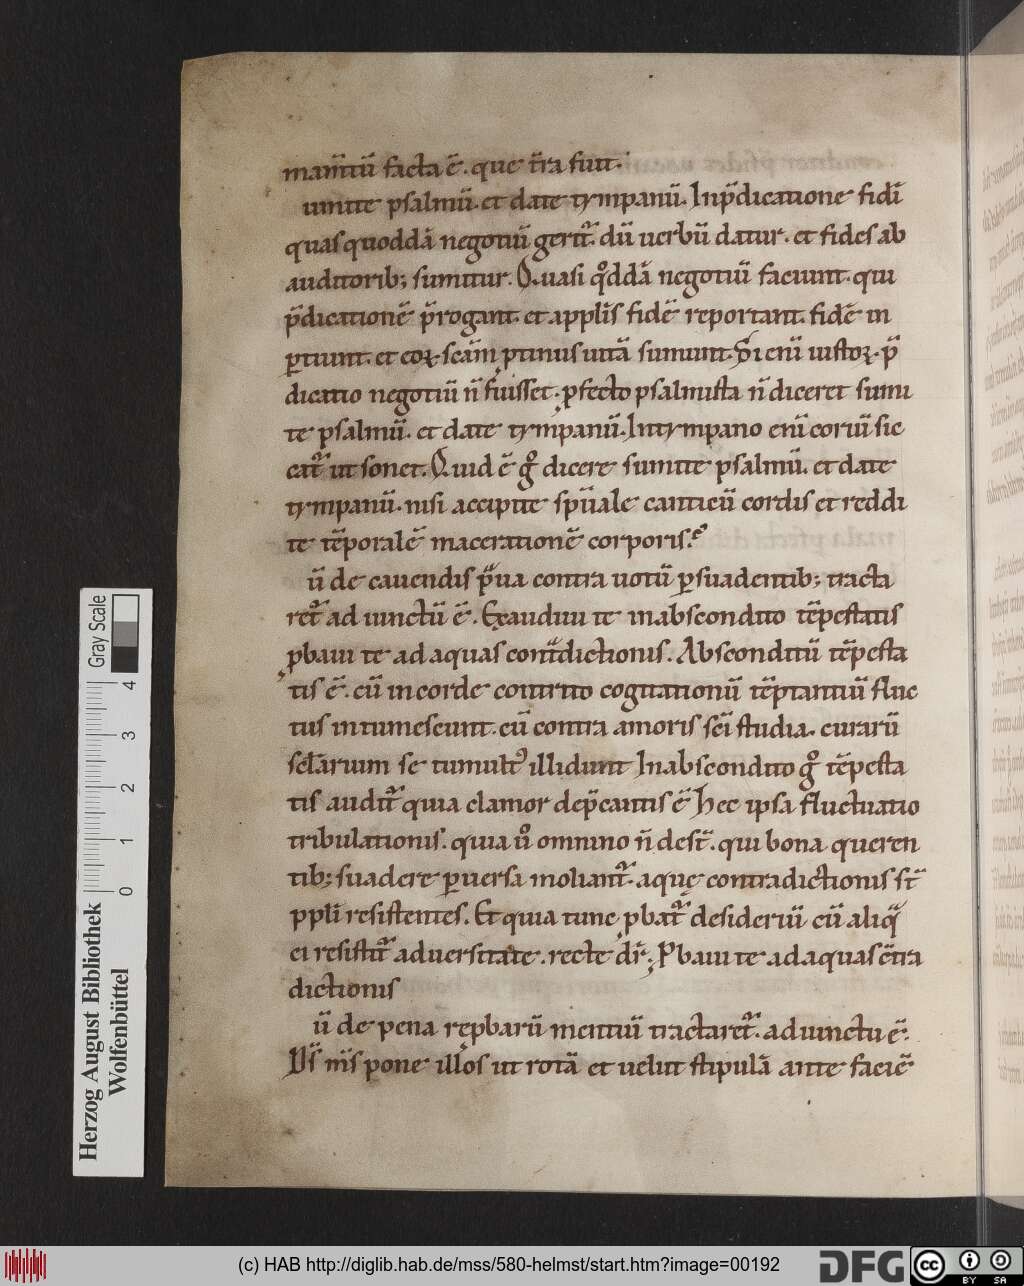 mam̄tiū facta ē. que t̄ra fuit.
umite psalmū. et date tympanū. Inp̄dicatione fidei
quas quoddā negotiū gerit᷑. dū uerbū datur. et fides ab
auditorib; sumitur. Quasi qͦddā negotiū faciunt. qui
p̄dicationē p̄rogant. et applis fidē reportant. fidē in
ꝑtiunt. et eoꝝ sc̄am ꝓtinus uitā sumunt. Si enī iustoꝝ. p̄
dicatio negotiū n̄ fuisset. ꝓfecto psalmista n̄ diceret sumi
te psalmū. et date tympanū. Intympano enī coriū sic
cat᷑ ut sonet. Quid ē gͦ dicere sumite psalmū. et date
tympanū. nisi accipite sp̄uale canticū cordis et reddi
te tēporalē macerationē corporis.
ū de cauendis pͣua contra uotū ꝑsuadentib; tracta
ret᷑ ad iunctū ē. Exaudiui te inabscondito tēpestatis
ꝓbaui te ad aquas contͣdictionis. Absconditū tēpesta
tis ē. cū in corde contrito cogitationū tēptantiū fluc
tus intumescunt. cū contra amoris sc̄i studia. curarū
sc̄larium se tumultꝰ illidunt Inabscondito gͦ tēpesta
tis audit᷑ quia clamor dep̄cantis ē Hec ipsa fluctuatio
tribulationis. quia uͦ omnino n̄ dest̄. qui bona queren
tib; suadere ꝑuersa moliant᷑. aquę contradictionis st̄
ppli resistentes. Et quia tunc ꝓbat᷑ desideriū cū aliqͣ
ei resistit᷑ aduersitate. recte dr̄; Ꝓbaui te ad aquas c̄tra
dictionis
ū de pena reꝓbarū mentiū tractaret᷑. adiunctū ē.
Ds̄ ms̄ pone illos ut rotā et uelut stipulā ante faciē
Gray Scale
0 1 2 3 4
Herzog August Bibliothek
Wolfenbüttel
(c) HAB http://diglib.hab.de/mss/580-helmst/start.htm?image=00192
DFG
cc BY SA